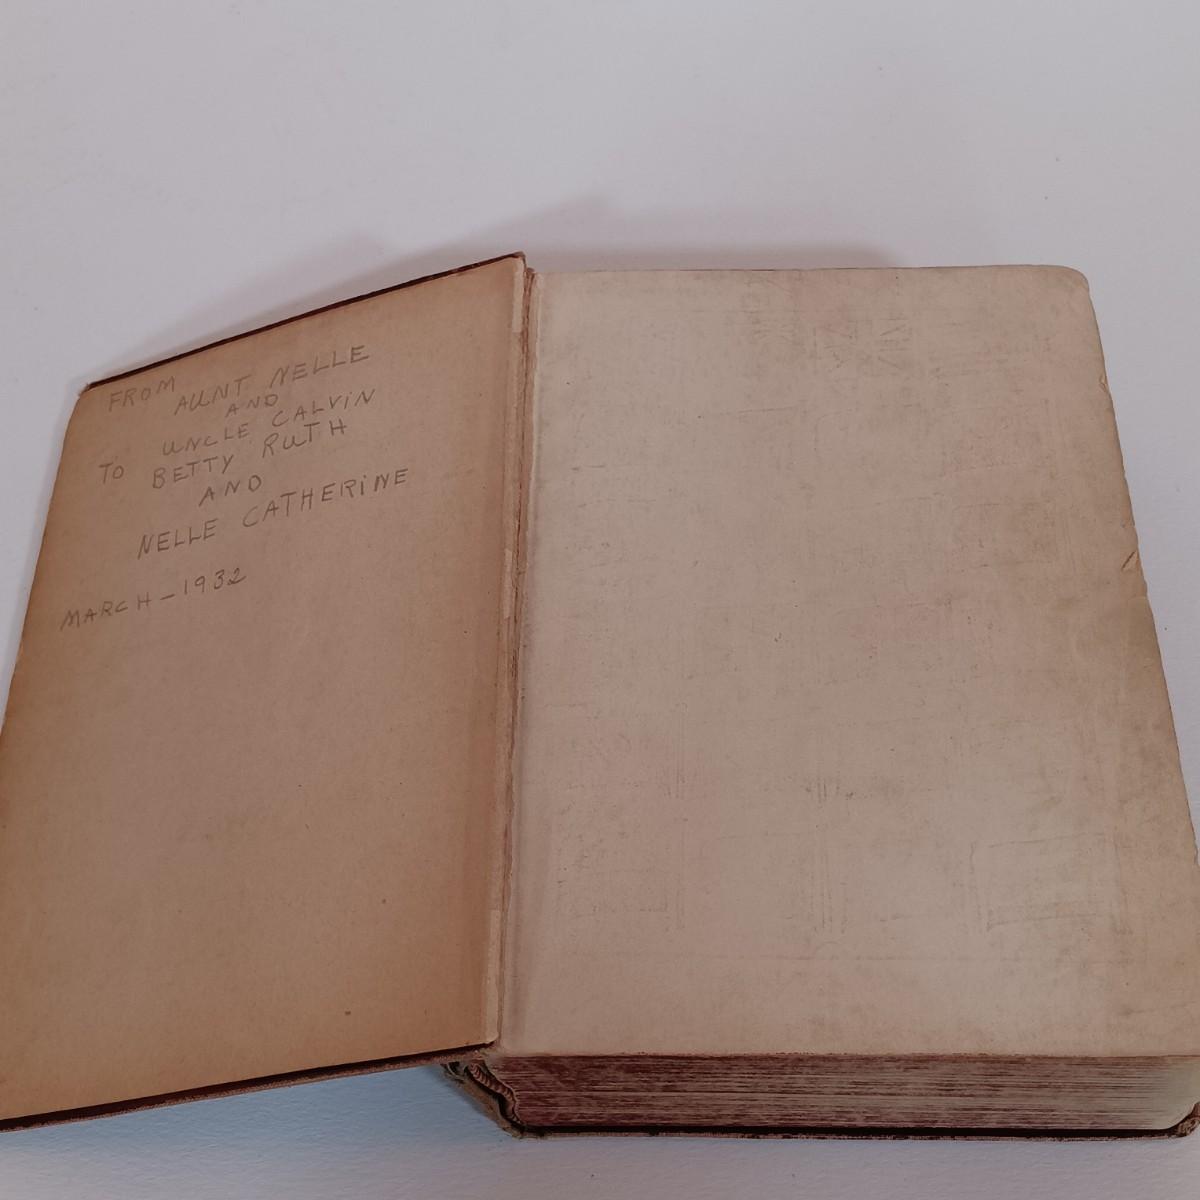 FROM AUNT NELLE
AND
UNCLE CALVIN
TO BETTY RUTH
AND
NELLE CATHERINE
MARCH - 1932